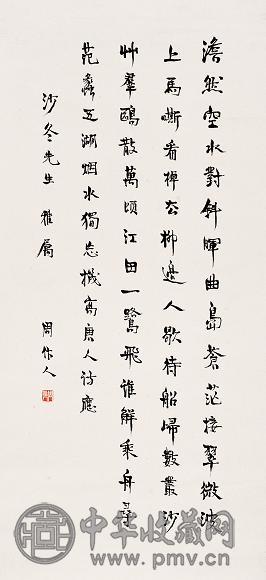 澹然空水對斜暉曲島蒼茫接翠微波
上馬嘶看棹去柳邊人歇待船歸數叢沙
艸羣鷗散萬頃江田一鷺飛誰解乘舟尋
范蠡五湖烟水獨忘機寫唐人詩應
沙冬先生 雅屬
周作人
中华收藏网
www.pmv.cn